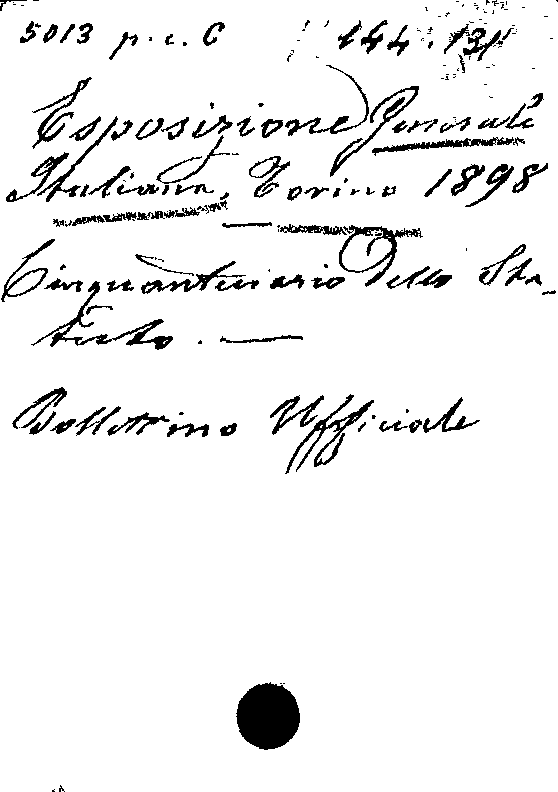 5013 p. c. C 144.131
Esposizione Generale
Italiana, Torino 1898
Cinquantenario Dello Sta-
tuto. —
Bollettino Ufficiale